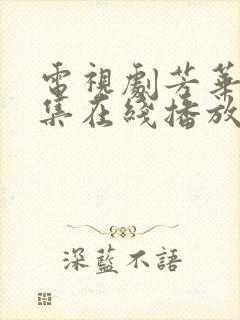 電視劇芳華
集在綫播放
深藍不語